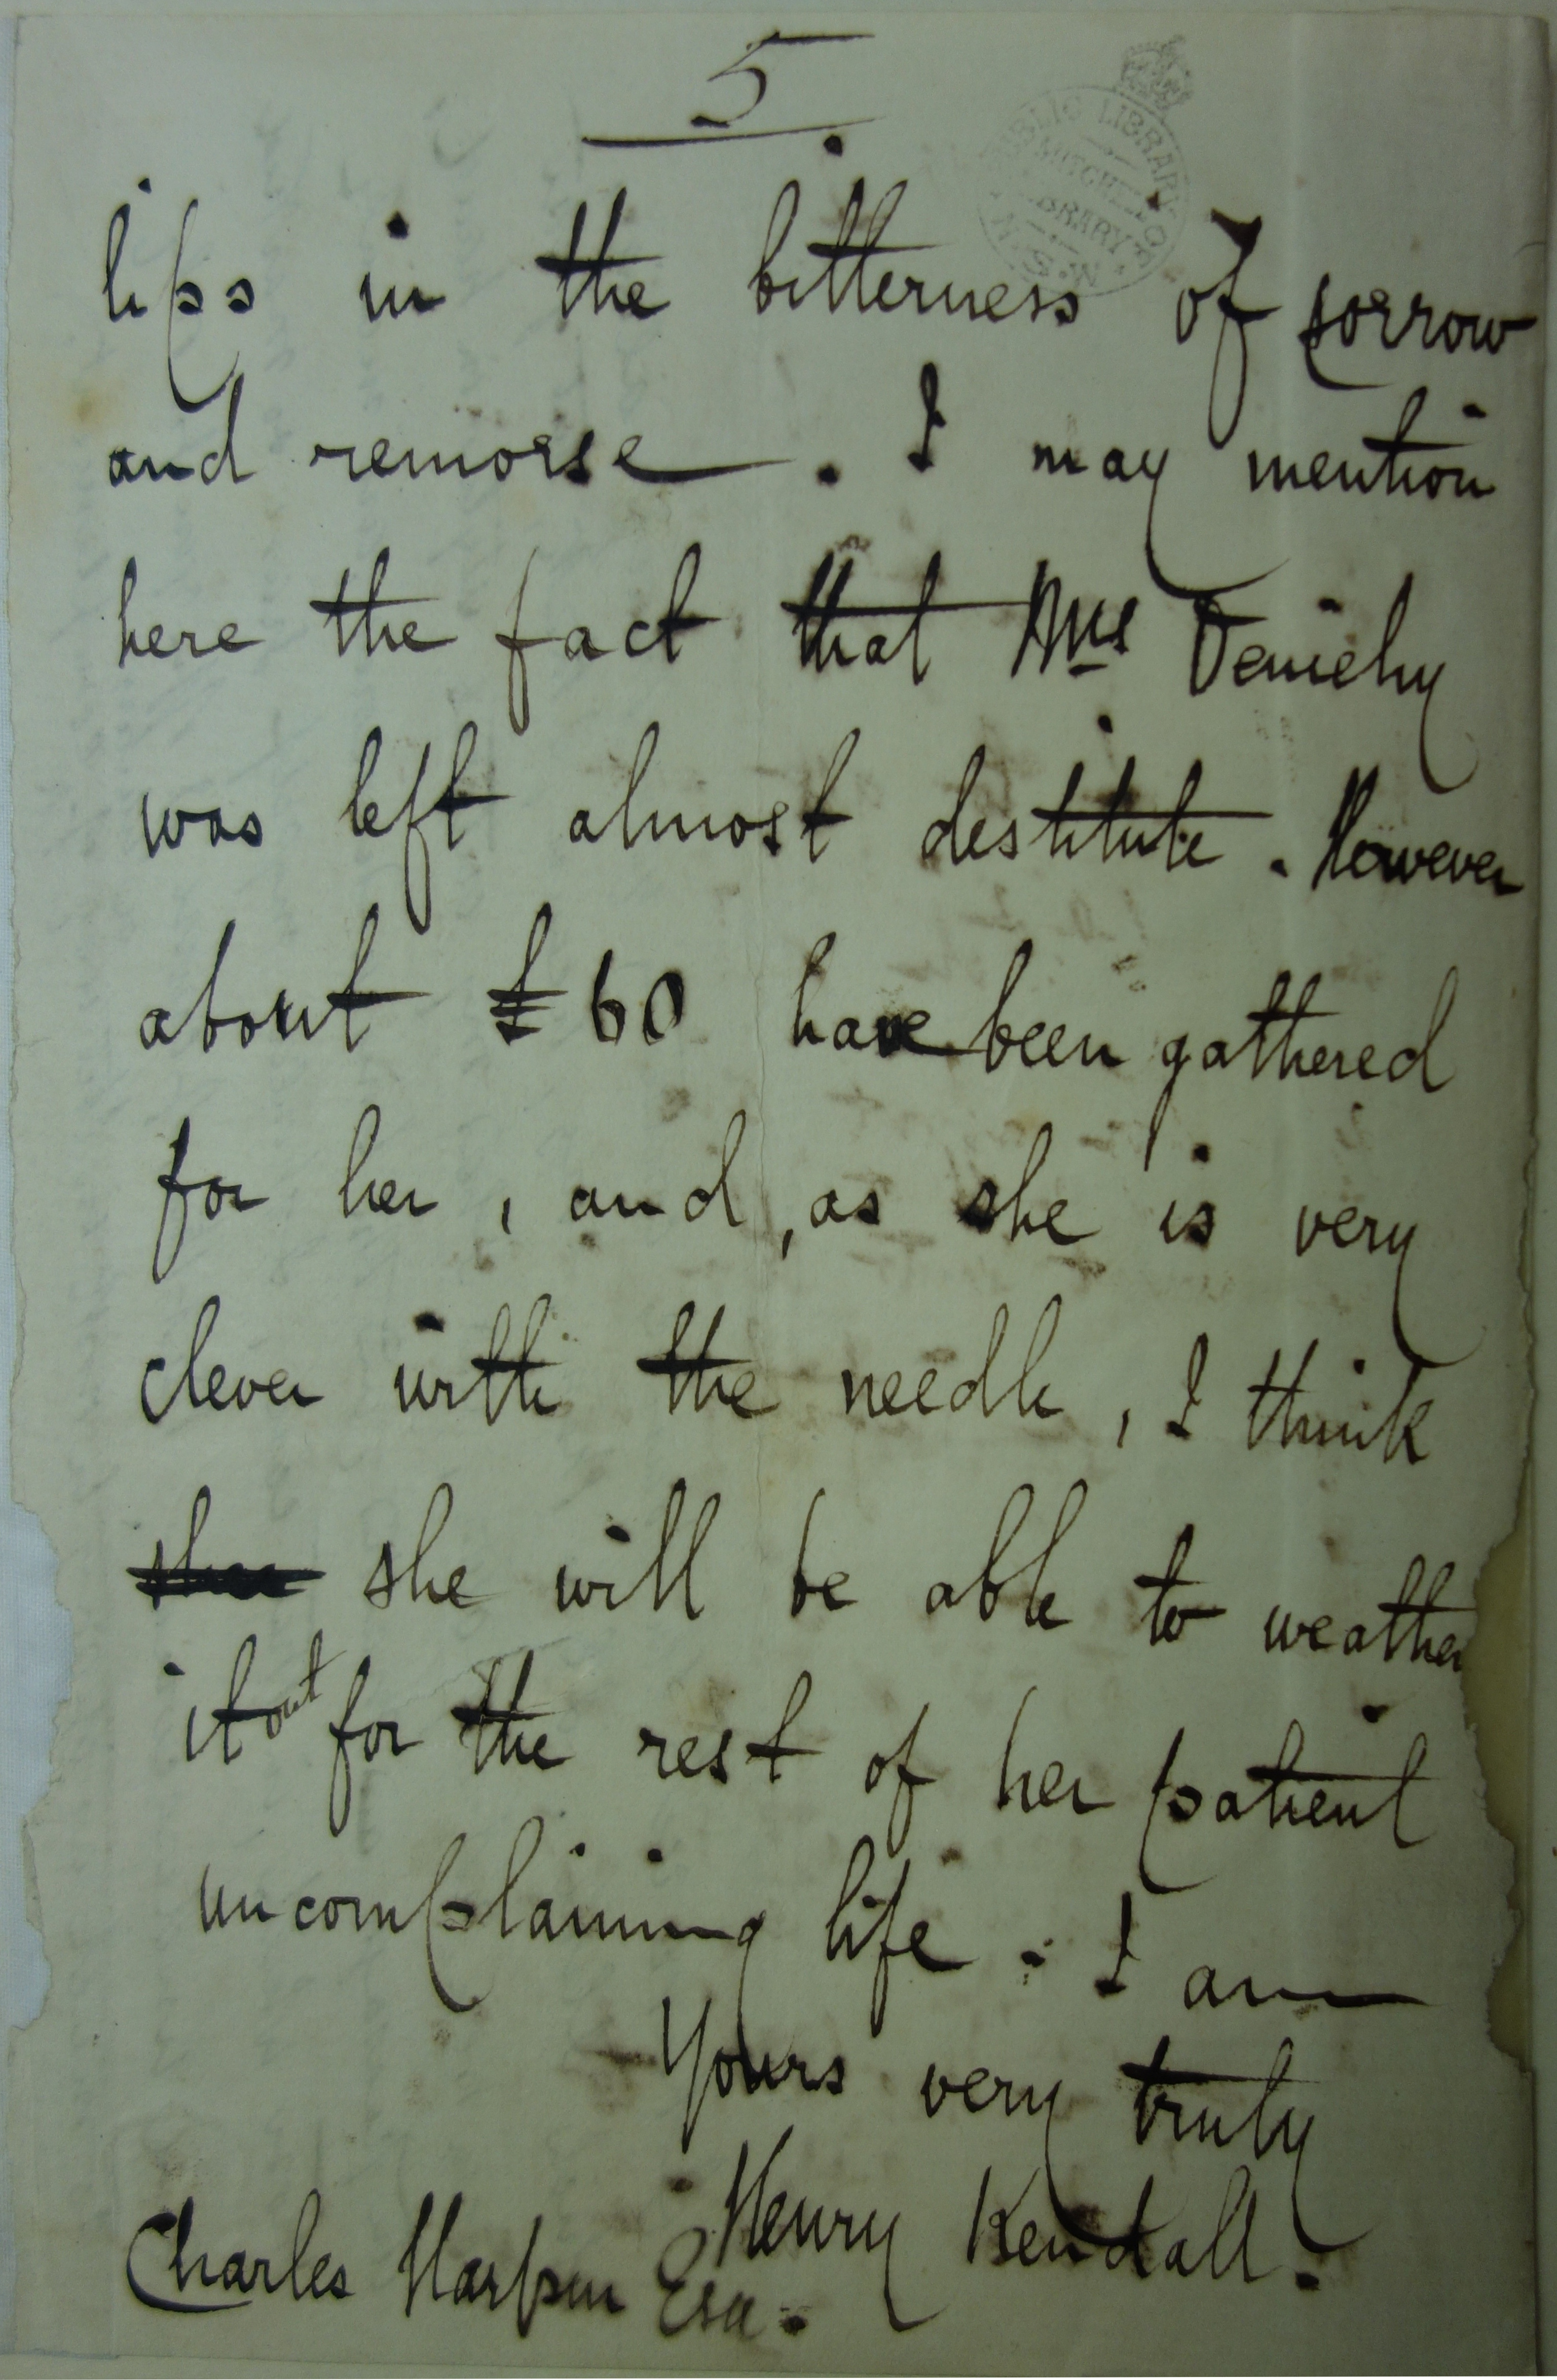 5.
PUBLIC LIBRARY
MITCHELL
LIBRARY
N.S.W.
lips in the bitterness of sorrow
and remorse. I may mention
here the fact that Mrs Deniehy
was left almost destitute. However
about £60 have been gathered
for her, and, as she is very
clever with the needle, I think
she will be able to weather
it out for the rest of her patient
uncomplaining life. I am
Yours very truly
Henry Kendall.
Charles Harpur Esq.